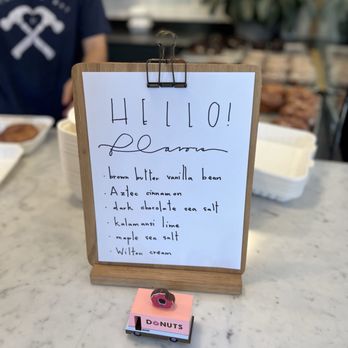 HELLO!
flavors
· brown butter vanilla bean
· Aztec cinnamon
· dark chocolate sea salt
· kalamansi lime
· maple sea salt
· Wilton cream
DONUTS